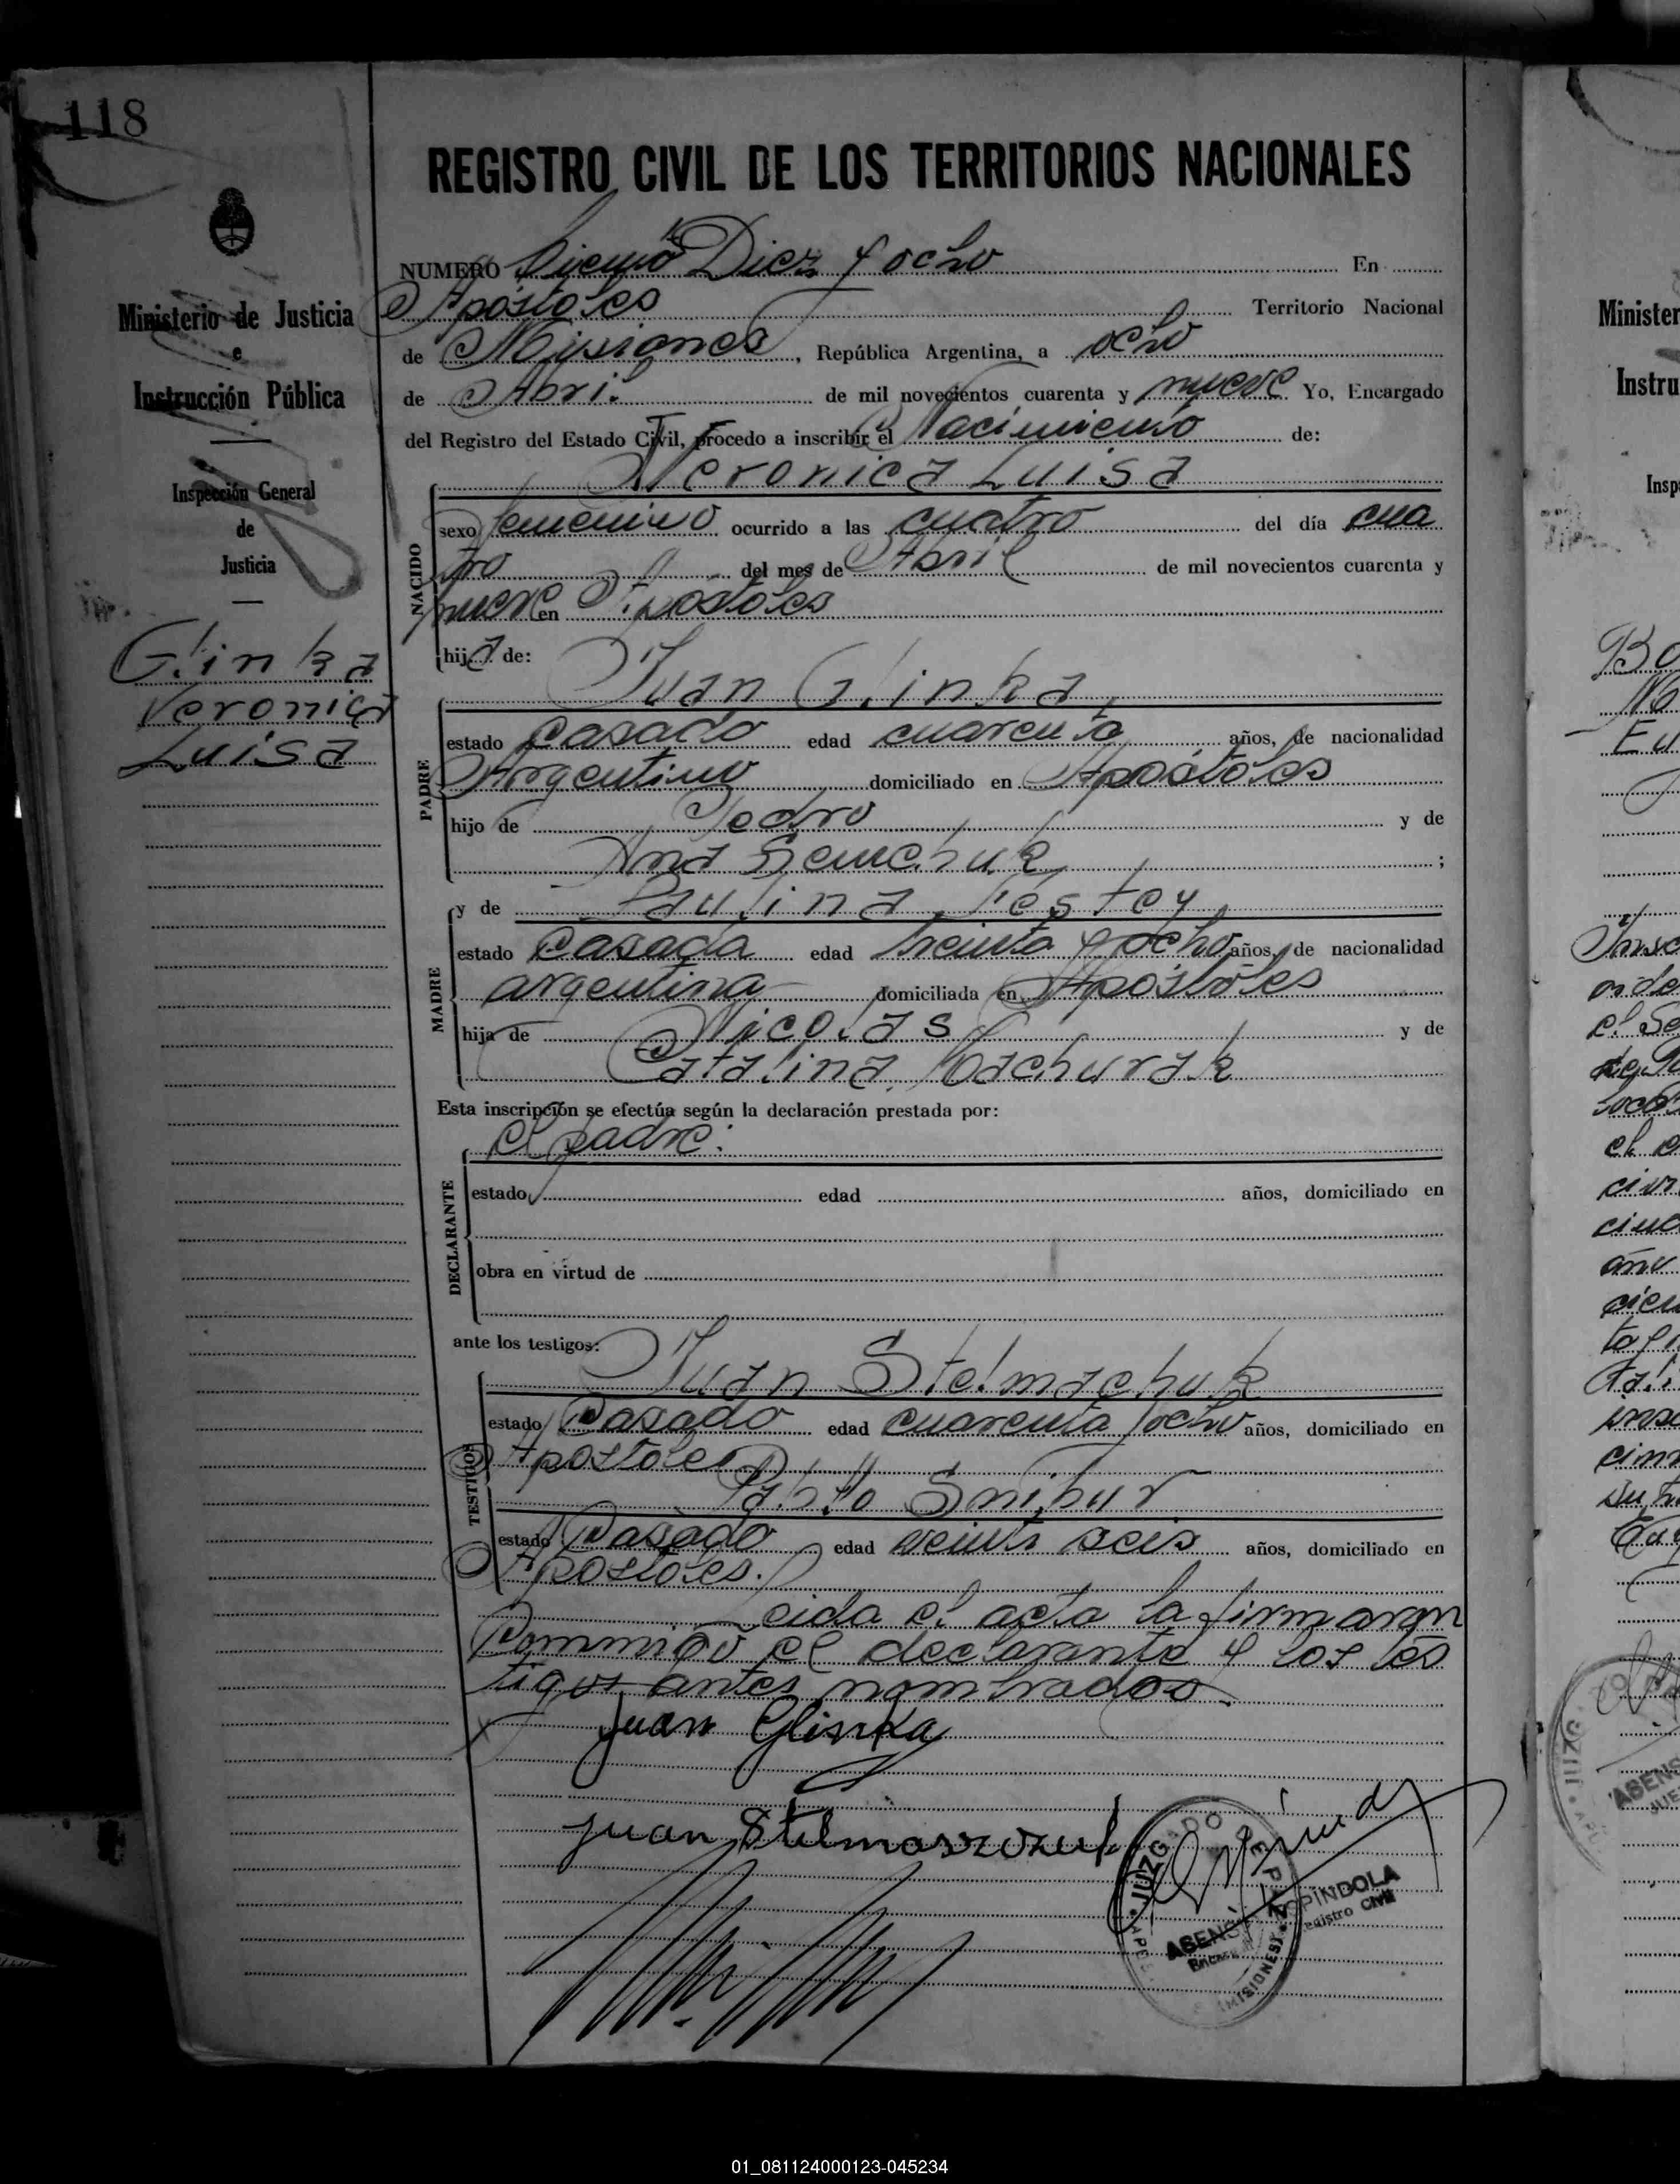 118
REGISTRO CIVIL DE LOS TERRITORIOS NACIONALES
NUMERO Ciento Diez y ocho En
Apóstoles Territorio Nacional
de Misiones, República Argentina, a ocho
de Abril de mil novecientos cuarenta y nueve Yo, Encargado
del Registro del Estado Civil, procedo a inscribir el Nacimiento de:
Veronica Luisa
NACIDO
sexo femenino ocurrido a las cuatro del día cua
tro del mes de Abril de mil novecientos cuarenta y
nueve en Apóstoles
hija de:
Juan Glinka,
PADRE
estado Casado edad cuarenta años, de nacionalidad
Argentino domiciliado en Apóstoles
hijo de Pedro y de
Ana Semchuk ;
y de Paulina Festey
MADRE
estado Casada edad treinta y ocho años, de nacionalidad
argentina domiciliada en Apóstoles
hija de Nicolas y de
Catalina Kachurak
Esta inscripción se efectúa según la declaración prestada por:
el padre:
DECLARANTE
estado edad años, domiciliado en
obra en virtud de
ante los testigos:
Juan Stelmachuk
TESTIGOS
estado Casado edad cuarenta y ocho años, domiciliado en
Apostoles
Pablo Snihur
estado Casado edad veinti seis años, domiciliado en
Apostoles.
Leida el acta la firmaron
conmigo el declarante y los tes
tigos antes nombrados.
Juan Glinka
Juan Stelmaszczuk
JUZGADO DE PAZ
APO (MISIONES)
ASENS ESPINDOLA
Encar Registro Civil
Ministerio de Justicia
e
Instrucción Pública
Inspección General
de
Justicia
Glinka
Veronica
Luisa
Minister
Instru
Insp
01_081124000123-045234